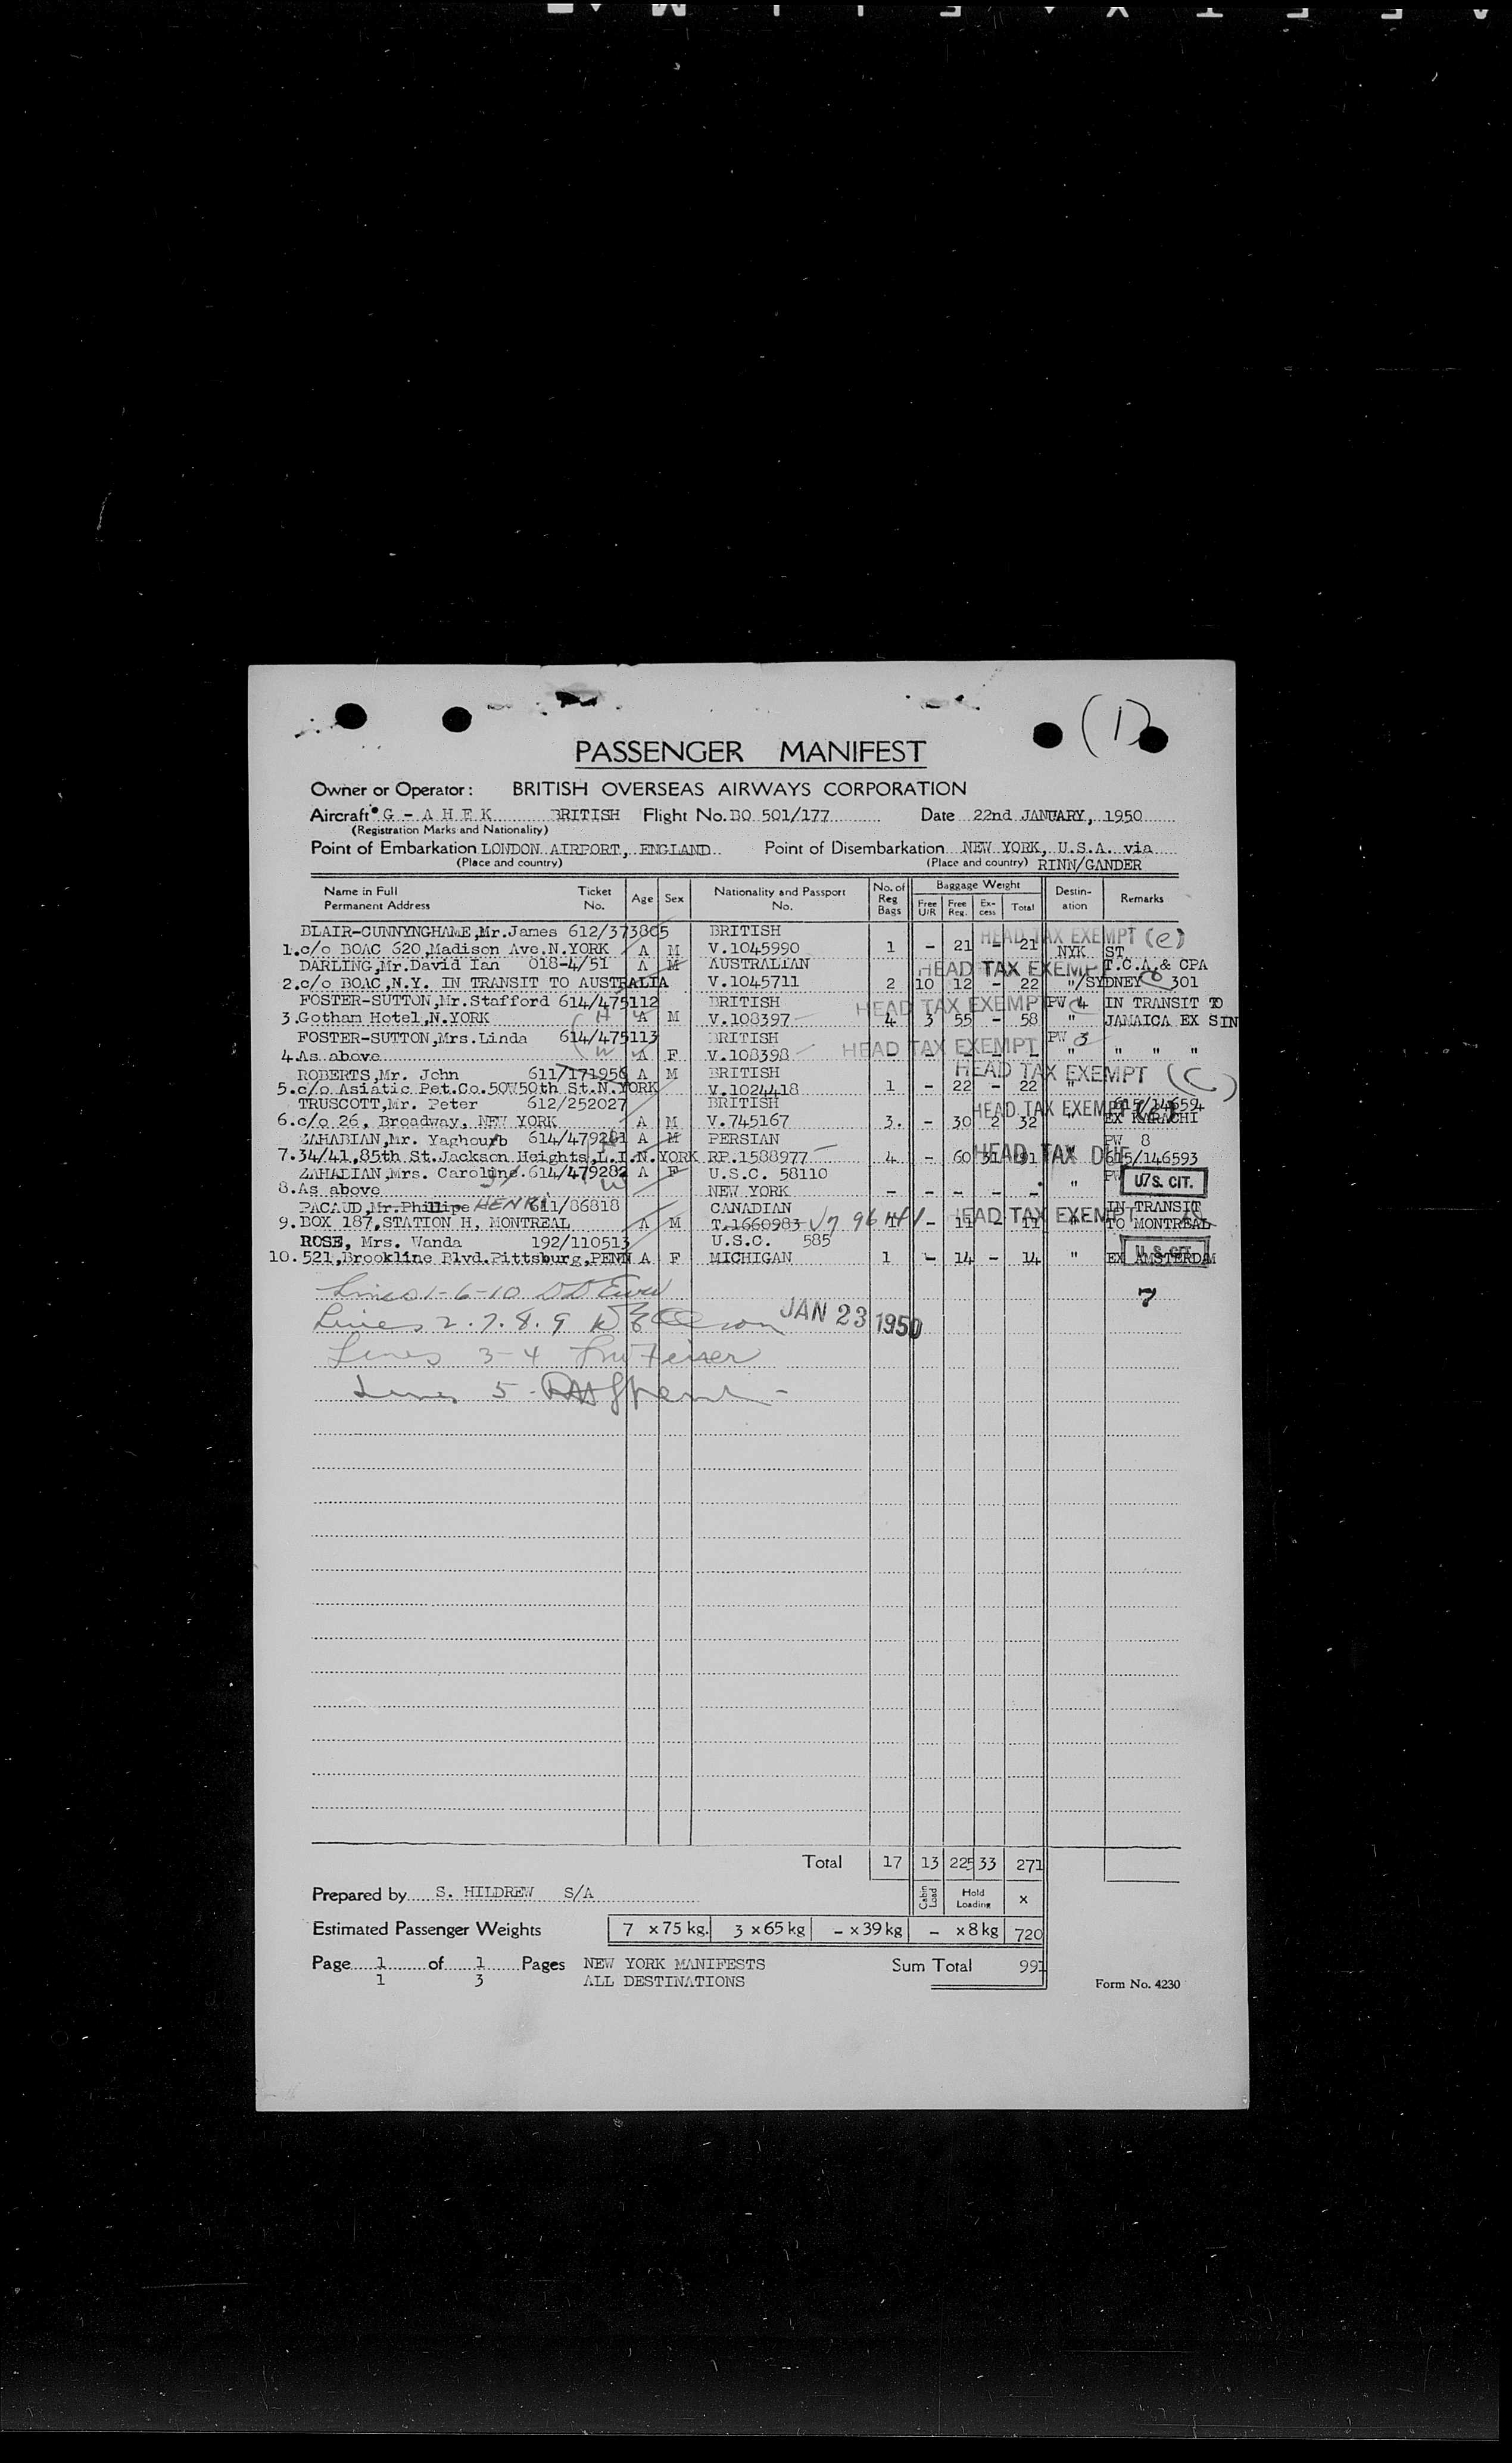 (1)
PASSENGER MANIFEST
Owner or Operator: BRITISH OVERSEAS AIRWAYS CORPORATION
Aircraft G - A H E K BRITISH Flight No. BO 501/177 Date 22nd JANUARY, 1950
(Registration Marks and Nationality)
Point of Embarkation LONDON AIRPORT, ENGLAND Point of Disembarkation NEW YORK, U.S.A. via
(Place and country) (Place and country) RINN/GANDER
Name in Full Permanent Address Ticket No. Age Sex Nationality and Passport No. No. of Reg Bags Baggage Weight Free U/R Free Reg. Ex-cess Total Destin-ation Remarks
BLAIR-CUNNYNGHAME,Mr.James 612/373805 BRITISH HEAD TAX EXEMPT (e)
1.c/o BOAC 620,Madison Ave.N.YORK A M V.1045990 1 - 21 - 21 NYK ST
DARLING,Mr.David Ian 018-4/51 A M AUSTRALIAN HEAD TAX EXEMPT T.C.A.& CPA
2.c/o BOAC,N.Y. IN TRANSIT TO AUSTRALIA V.1045711 2 10 12 - 22 "/SYDNEY 301
FOSTER-SUTTON,Mr.Stafford 614/475112 BRITISH HEAD TAX EXEMPT PW 4 IN TRANSIT TO
3.Gotham Hotel,N.YORK H A M V.108397 4 3 55 - 58 " JAMAICA EX SIN
FOSTER-SUTTON,Mrs.Linda 614/475113 BRITISH PW 3
4.As above W A F V.108398 HEAD TAX EXEMPT - - - - - " " " "
ROBERTS,Mr. John 611/171956 A M BRITISH HEAD TAX EXEMPT (C)
5.c/o Asiatic Pet.Co.50W50th St.N.YORK V.1024418 1 - 22 - 22 "
TRUSCOTT,Mr. Peter 612/252027 BRITISH HEAD TAX EXEMPT 615/14659
6.c/o 26, Broadway, NEW YORK A M V.745167 3. - 30 2 32 " EX KARACHI
ZAHABIAN,Mr. Yaghourb 614/479281 A M PERSIAN PW 8
7.34/41,85th St.Jackson Heights,L.I.N.YORK RP.1588977 4 - 60 31 91 HEAD TAX DUE 615/146593
ZAHALIAN,Mrs. Caroline.614/479282 A F U.S.C. 58110 PW U/S. CIT.
8.As above W NEW YORK - - - - - "
PACAUD,Mr.Phillipe HENRI 611/86818 CANADIAN IN TRANSIT
9.BOX 187,STATION H, MONTREAL A M T.1660983 1 - 11 - 11 HEAD TAX EXEMPT " TO MONTREAL
ROSE, Mrs. Wanda 192/110513 U.S.C. 585 U.S. CIT.
10.521,Brookline Blvd.Pittsburg,PENN A F MICHIGAN 1 - 14 - 14 " EX AMSTERDAM
Lines 1-6-10
7
Lines 2.7.8.9 JAN 23 1950
Lines 3-4
Lines 5
Total 17 13 225 33 271
Prepared by S. HILDREW S/A Cabin Load Hold Loading x
Estimated Passenger Weights 7 x 75 kg. 3 x 65 kg - x 39 kg - x 8 kg 720
Page 1 of 1 Pages NEW YORK MANIFESTS Sum Total 991
1 3 ALL DESTINATIONS Form No. 4230